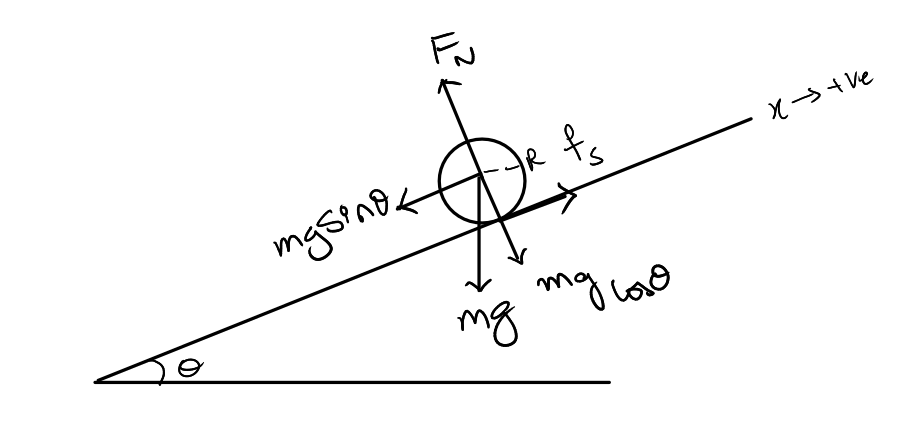 F_N
x → +ve
R
f_s
mg sinθ
mg cosθ
mg
θ